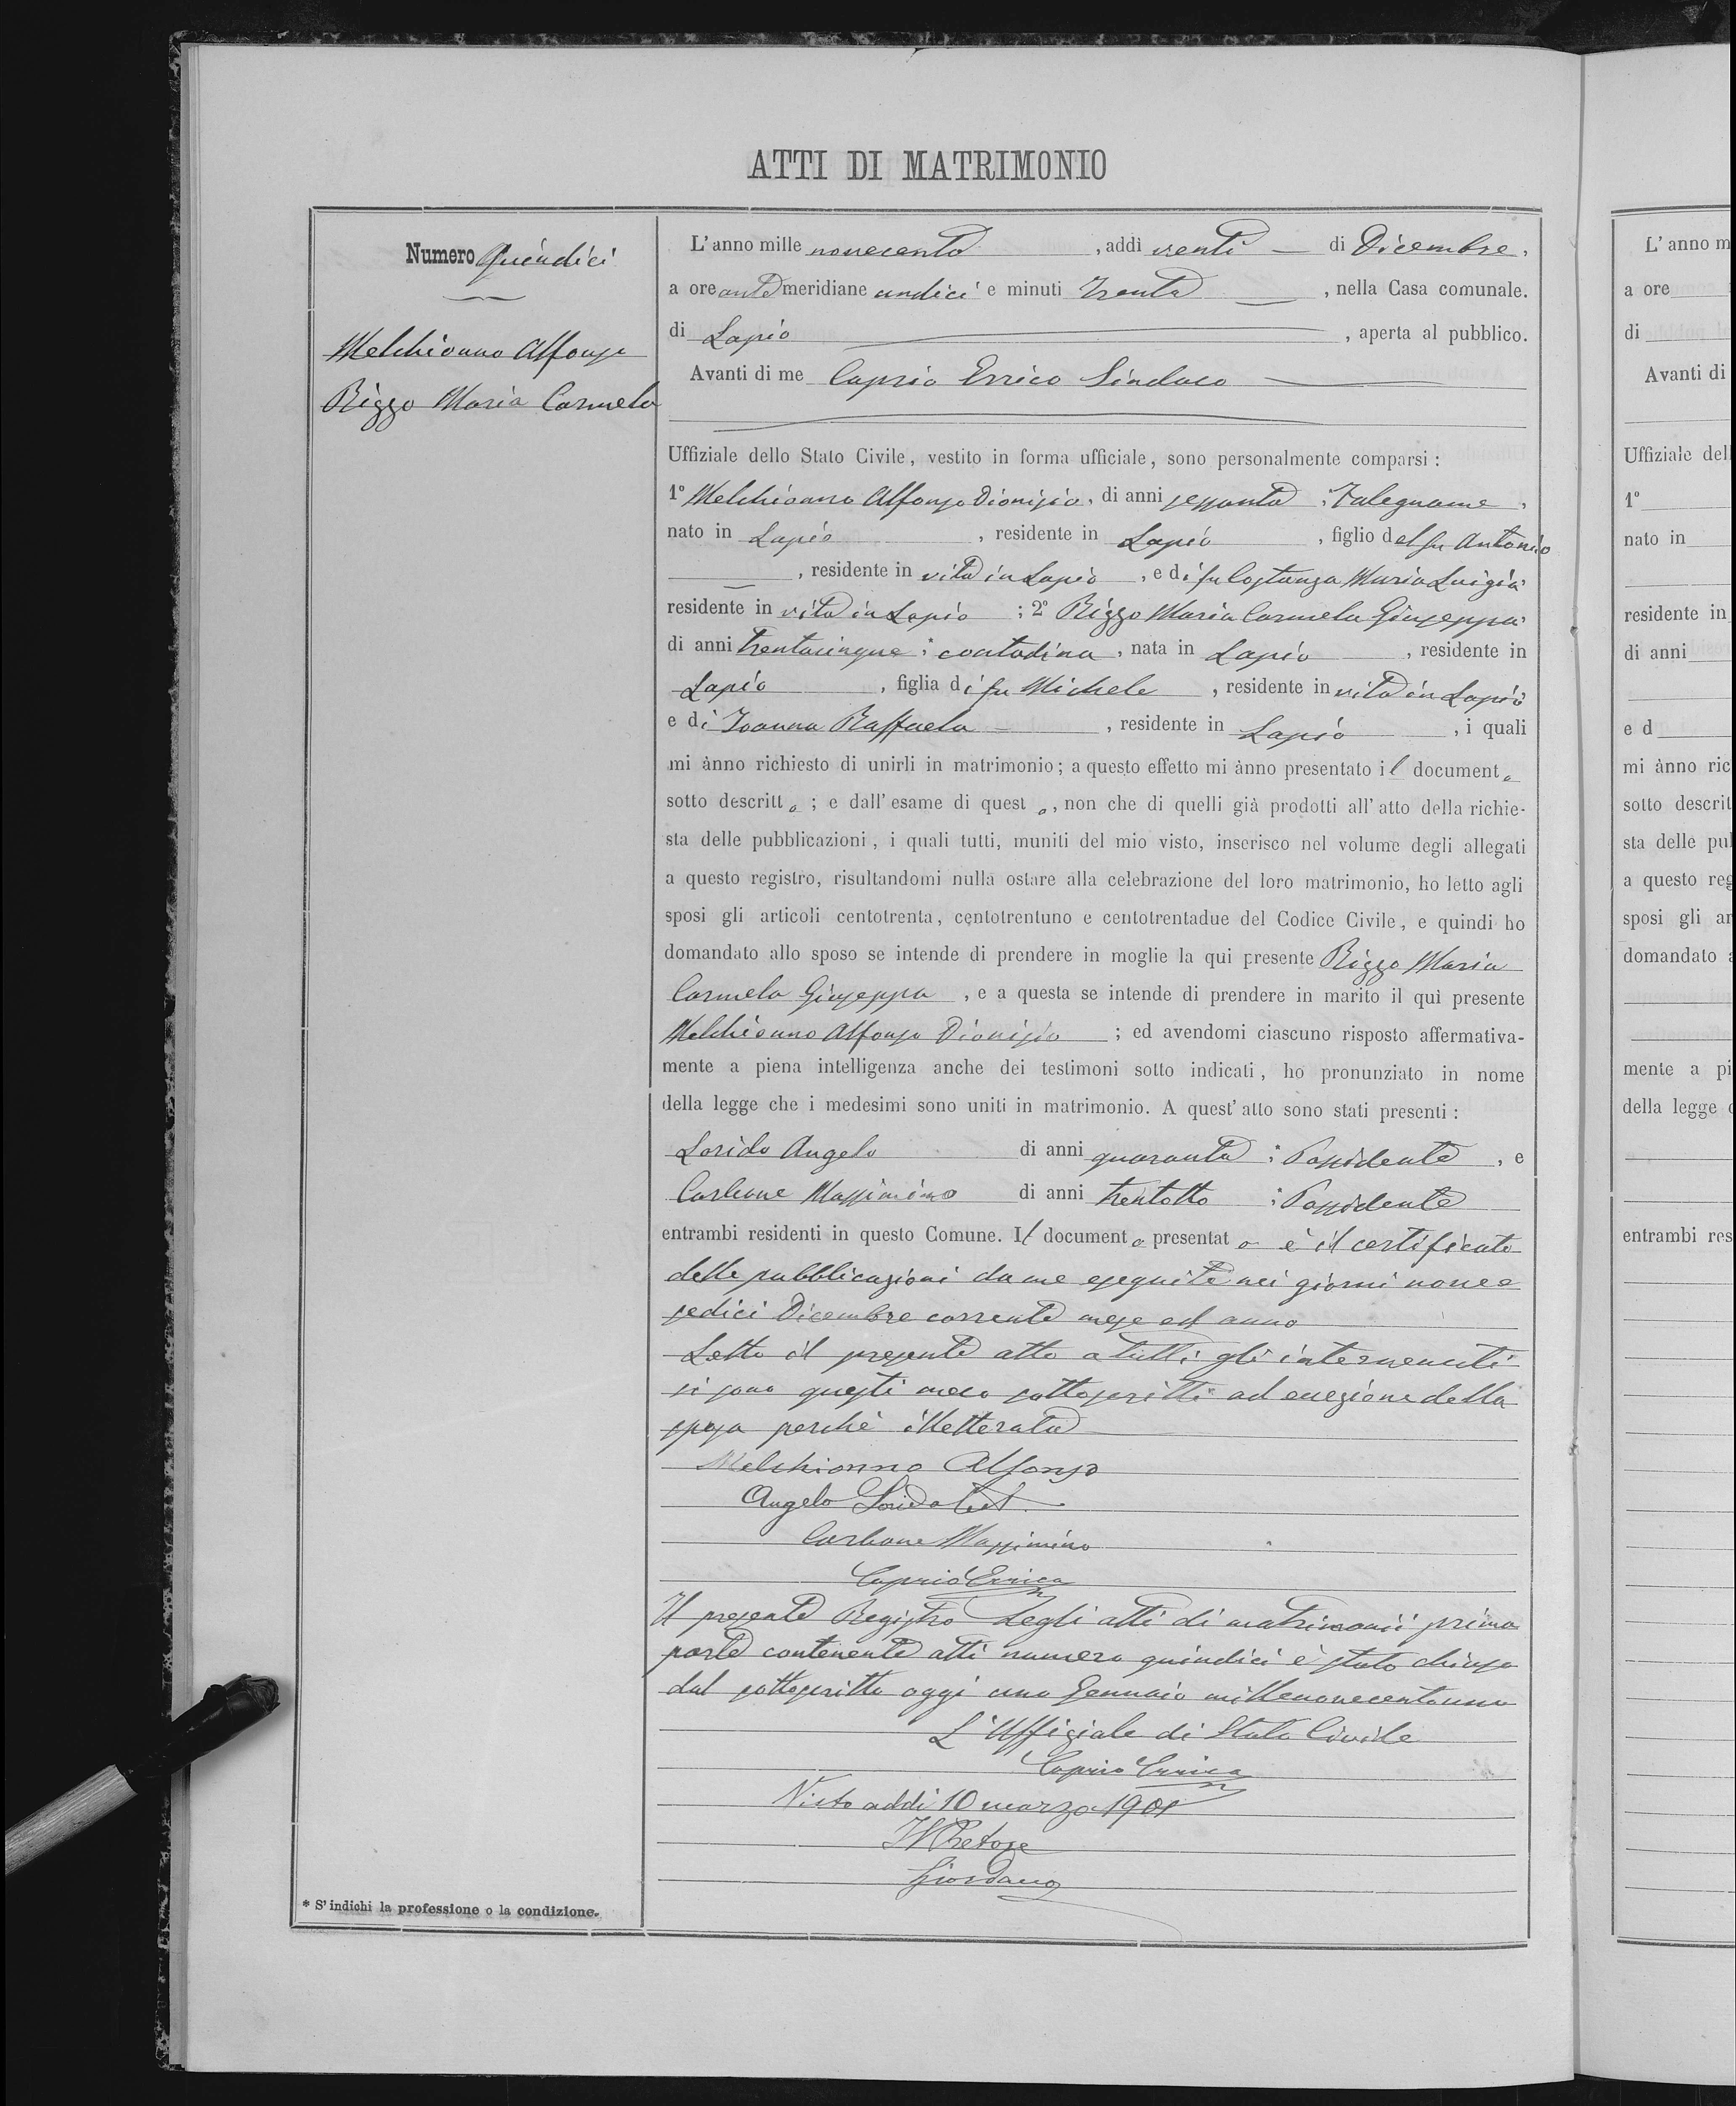 ATTI DI MATRIMONIO
Numero Quindici
Melchionno Alfonso
Rizzo Maria Carmela
L'anno mille novecento, addì venti di Dicembre,
a ore antemeridiane undici e minuti Trenta, nella Casa comunale.
di Lapio, aperta al pubblico.
Avanti di me Caprio Errico Sindaco
Uffiziale dello Stato Civile, vestito in forma ufficiale, sono personalmente comparsi:
1° Melchionno Alfonso Dionisio, di anni sessanta, Falegname,
nato in Lapio, residente in Lapio, figlio del fu Antonio
, residente in vita in Lapio, e di fu Costanza Maria Luigia
residente in vita in Lapio; 2° Rizzo Maria Carmela Giuseppa
di anni trentacinque, contadina, nata in Lapio, residente in
Lapio, figlia di fu Michele, residente in vita in Lapio
e di Ioanna Raffaela, residente in Lapio, i quali
mi ànno richiesto di unirli in matrimonio; a questo effetto mi ànno presentato il documento
sotto descritto; e dall'esame di questo, non che di quelli già prodotti all'atto della richie-
sta delle pubblicazioni, i quali tutti, muniti del mio visto, inserisco nel volume degli allegati
a questo registro, risultandomi nulla ostare alla celebrazione del loro matrimonio, ho letto agli
sposi gli articoli centotrenta, centotrentuno e centotrentadue del Codice Civile, e quindi ho
domandato allo sposo se intende di prendere in moglie la qui presente Rizzo Maria
Carmela Giuseppa, e a questa se intende di prendere in marito il qui presente
Melchionno Alfonso Dionisio; ed avendomi ciascuno risposto affermativa-
mente a piena intelligenza anche dei testimoni sotto indicati, ho pronunziato in nome
della legge che i medesimi sono uniti in matrimonio. A quest'atto sono stati presenti:
Lorido Angelo di anni quaranta, Possidente, e
Carbone Massimino di anni trentotto, Possidente
entrambi residenti in questo Comune. Il documento presentato è il certificato
delle pubblicazioni da me eseguite nei giorni nove e
sedici Dicembre corrente mese ed anno
Letto il presente atto a tutti gli intervenuti
si sono questi meco sottoscritti ad eccezione della
sposa perchè illetterata
Melchionno Alfonso
Angelo Lorido
Carbone Massimino
Caprio Errico
Il presente Registro degli atti di matrimonii prima
parte contenente atti numero quindici è stato chiuso
dal sottoscritto oggi uno Gennaio millenovecentouno
L'Uffiziale di Stato Civile
Caprio Errico
Visto addì 10 marzo 1901
Il Pretore
Giordano
* S'indichi la professione o la condizione.
L'anno m
a ore
di
Avanti di
Uffiziale del
1°
nato in
residente in
di anni
e d
mi ànno ric
sotto descrit
sta delle pu
a questo reg
sposi gli ar
domandato
mente a pi
della legge
entrambi res